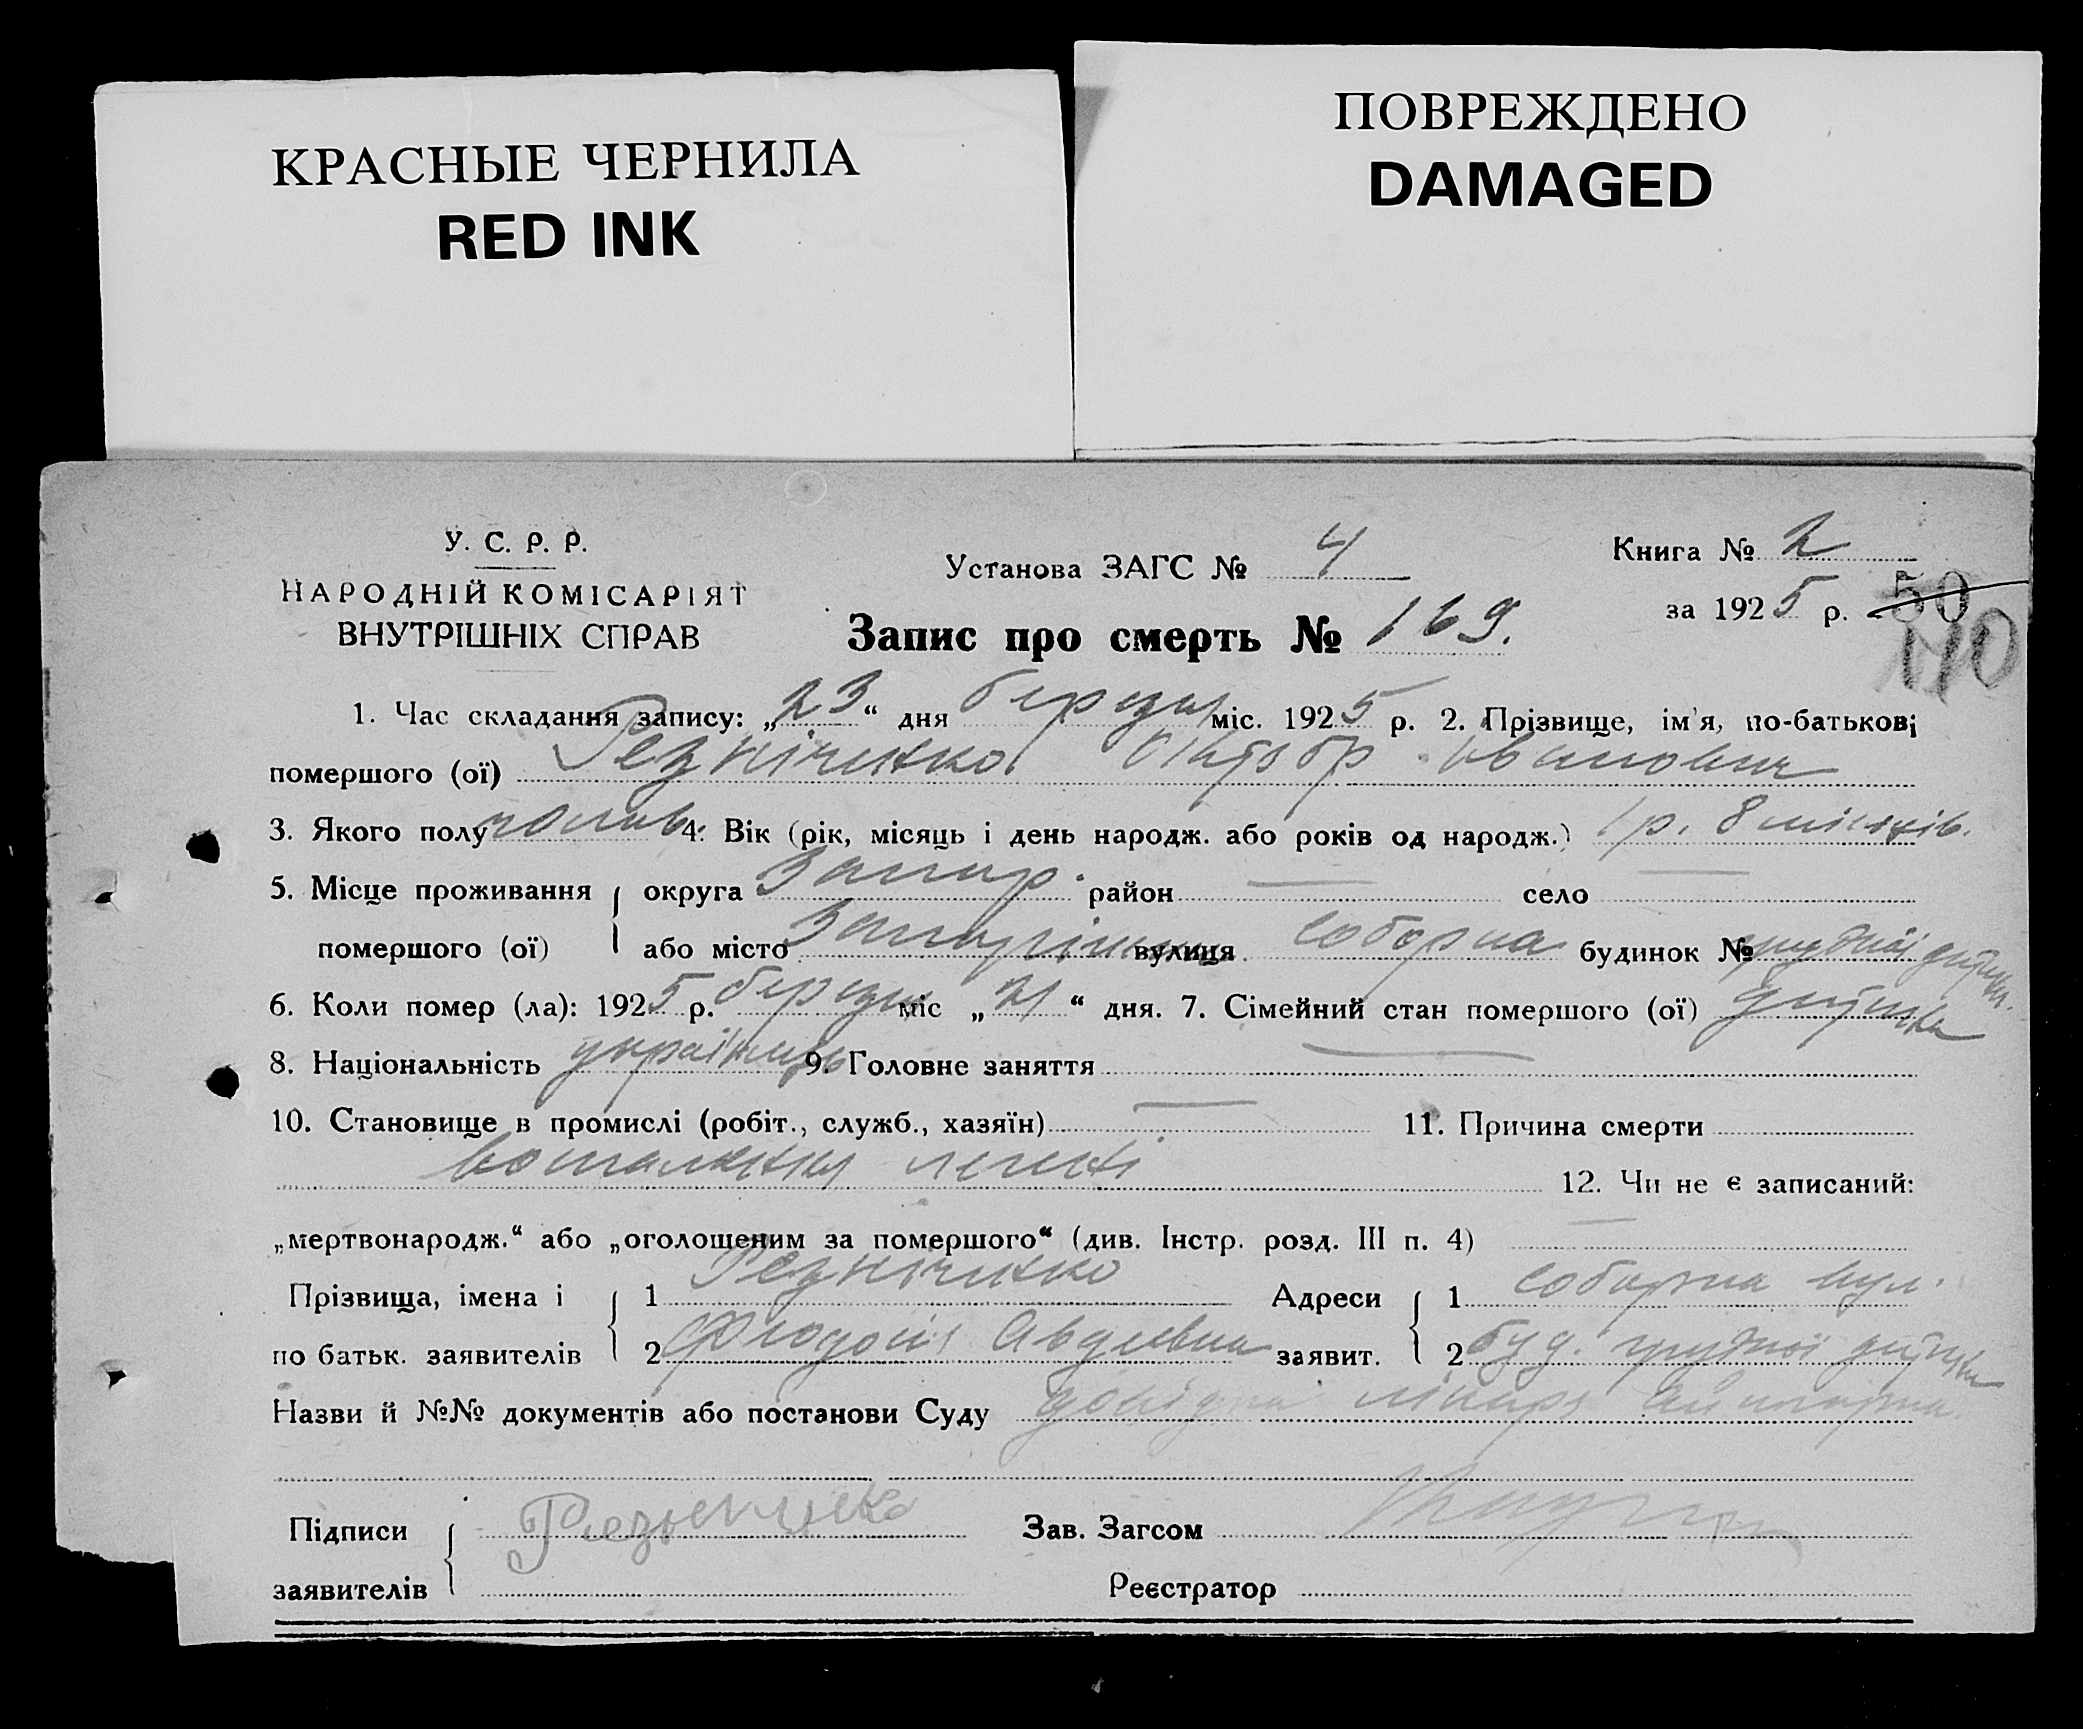 КРАСНЫЕ ЧЕРНИЛА
RED INK
ПОВРЕЖДЕНО
DAMAGED
У. С. Р. Р.
НАРОДНІЙ КОМІСАРІЯТ
ВНУТРІШНІХ СПРАВ
Установа ЗАГС № 4
Книга № 2
за 1925 р. 50
110
Запис про смерть № 169.
1. Час складання запису: „23“ дня березня міс. 1925 р. 2. Прізвище, ім'я, по-батькові
помершого (ої) Резніченко Іванович
3. Якого полу чолов. 4. Вік (рік, місяць і день народж. або років од народж.) 1 р. 8 місяців.
5. Місце проживання округа Запор. район — село —
помершого (ої) або місто Запоріжжя вулиця Соборна будинок № грудної дитини.
6. Коли помер (ла): 1925 р. березня міс „21“ дня. 7. Сімейний стан помершого (ої) дитина
8. Національність українець 9. Головне заняття —
10. Становище в промислі (робіт., служб., хазяїн) — 11. Причина смерти
легені 12. Чи не є записаний:
„мертвонародж.“ або „оголошеним за помершого“ (див. Інстр. розд. III п. 4) —
Прізвища, імена і 1 Резніченко Адреси 1 Соборна вул.
по батьк. заявителів 2 Феодосія Авдеевна заявит. 2 буд. грудної дитини
Назви й №№ документів або постанови Суду довідка лікаря
Підписи Зав. Загсом
заявителів Реєстратор